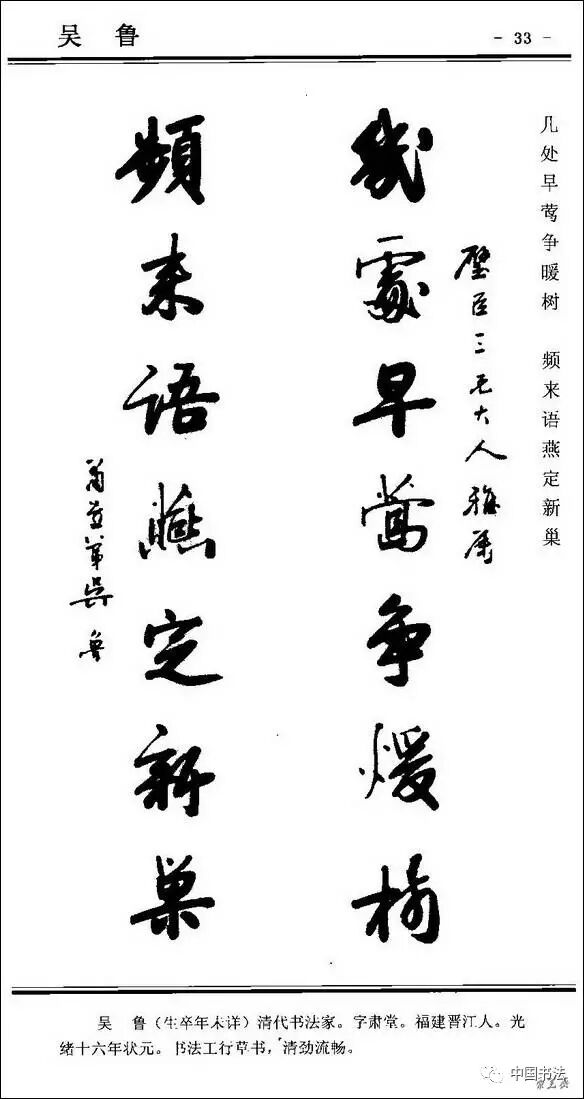 吴 鲁
- 33 -
几处早莺争暖树 频来语燕定新巢
璧臣三兄大人雅属
幾處早鶯争煖樹
頻来語燕定新巢
肅堂弟吳魯
吴 鲁（生卒年未详）清代书法家。字肃堂。福建晋江人。光
绪十六年状元。书法工行草书，清劲流畅。
中国书法